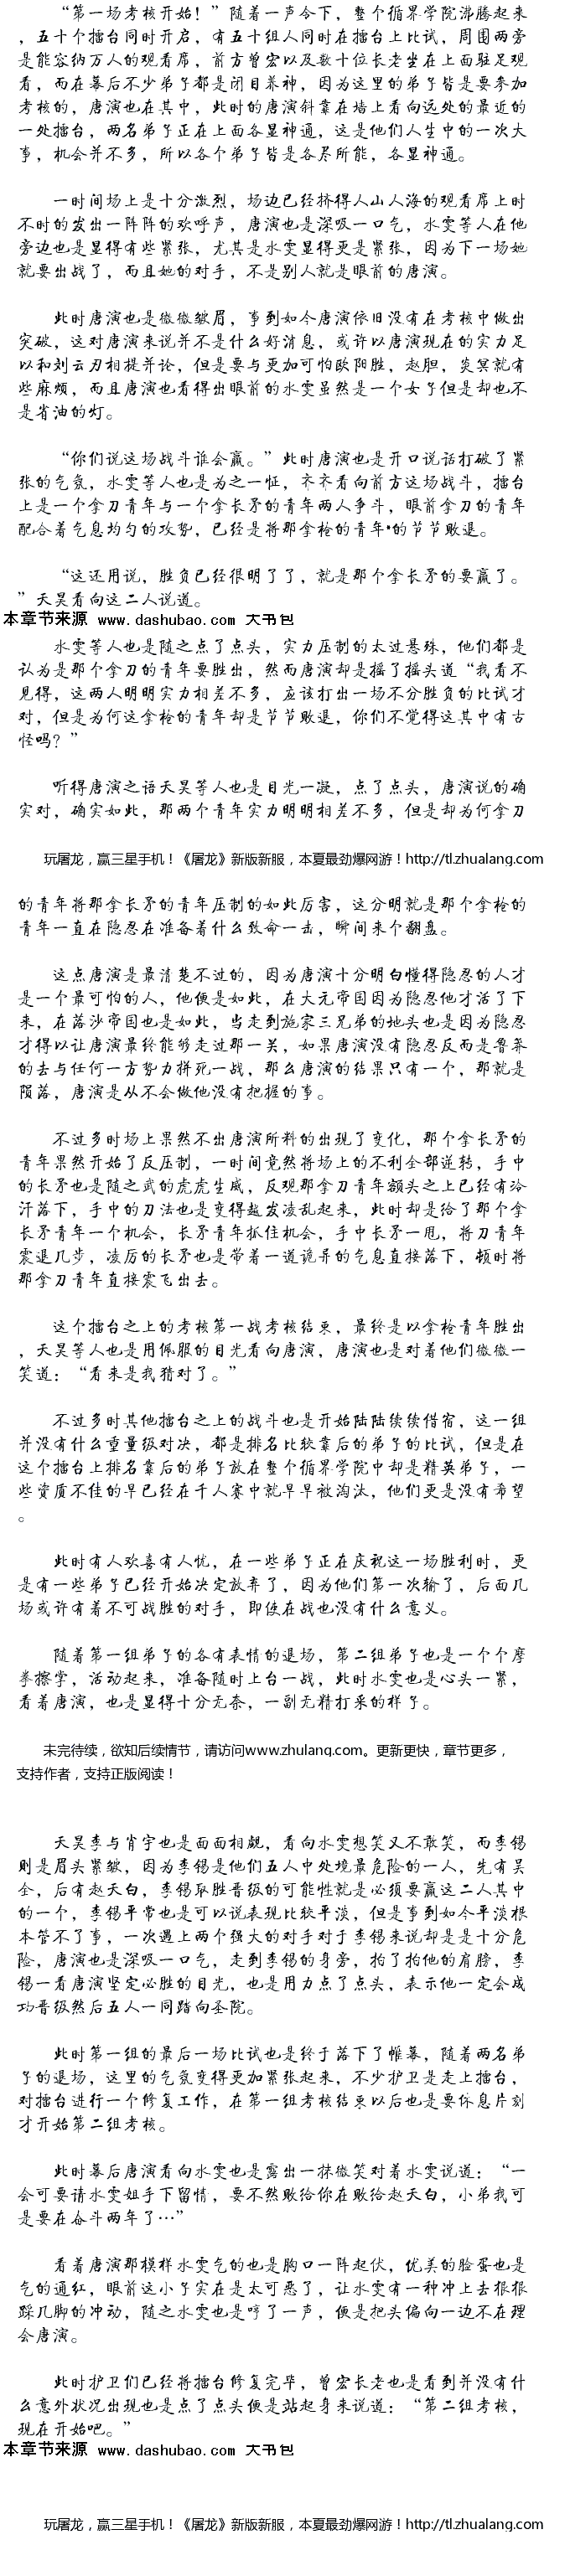 “第一场考核开始！”随着一声令下，整个循界学院沸腾起来
，五十个擂台同时开启，有五十组人同时在擂台上比试，周围两旁
是能容纳万人的观看席，前方曾宏以及数十位长老坐在上面驻足观
看，而在幕后不少弟子都是闭目养神，因为这里的弟子皆是要参加
考核的，唐演也在其中，此时的唐演斜靠在墙上看向远处的最近的
一处擂台，两名弟子正在上面各显神通，这是他们人生中的一次大
事，机会并不多，所以各个弟子皆是各尽所能，各显神通。
一时间场上是十分激烈，场边已经挤得人山人海的观看席上时
不时的发出一阵阵的欢呼声，唐演也是深吸一口气，水雯等人在他
旁边也是显得有些紧张，尤其是水雯显得更是紧张，因为下一场她
就要出战了，而且她的对手，不是别人就是眼前的唐演。
此时唐演也是微微皱眉，事到如今唐演依旧没有在考核中做出
突破，这对唐演来说并不是什么好消息，或许以唐演现在的实力足
以和刘云刃相提并论，但是要与更加可怕欧阳胜，赵胆，炎冥就有
些麻烦，而且唐演也看得出眼前的水雯虽然是一个女子但是却也不
是省油的灯。
“你们说这场战斗谁会赢。”此时唐演也是开口说话打破了紧
张的气氛，水雯等人也是为之一怔，齐齐看向前方这场战斗，擂台
上是一个拿刀青年与一个拿长矛的青年两人争斗，眼前拿刀的青年
配合着气息均匀的攻势，已经是将那拿枪的青年的节节败退。
“这还用说，胜负已经很明了了，就是那个拿长矛的要赢了。
”天昊看向这二人说道。
本章节来源 www.dashubao.com 大书包
水雯等人也是随之点了点头，实力压制的太过悬殊，他们都是
认为是那个拿刀的青年要胜出，然而唐演却是摇了摇头道“我看不
见得，这两人明明实力相差不多，应该打出一场不分胜负的比试才
对，但是为何这拿枪的青年却是节节败退，你们不觉得这其中有古
怪吗？”
听得唐演之语天昊等人也是目光一凝，点了点头，唐演说的确
实对，确实如此，那两个青年实力明明相差不多，但是却为何拿刀
玩屠龙，赢三星手机！《屠龙》新版新服，本夏最劲爆网游！http://tl.zhualang.com
的青年将那拿长矛的青年压制的如此厉害，这分明就是那个拿枪的
青年一直在隐忍在准备着什么致命一击，瞬间来个翻盘。
这点唐演是最清楚不过的，因为唐演十分明白懂得隐忍的人才
是一个最可怕的人，他便是如此，在大元帝国因为隐忍他才活了下
来，在落沙帝国也是如此，当走到施家三兄弟的地头也是因为隐忍
才得以让唐演最终能够走过那一关，如果唐演没有隐忍反而是鲁莽
的去与任何一方势力拼死一战，那么唐演的结果只有一个，那就是
陨落，唐演是从不会做他没有把握的事。
不过多时场上果然不出唐演所料的出现了变化，那个拿长矛的
青年果然开始了反压制，一时间竟然将场上的不利全部逆转，手中
的长矛也是随之武的虎虎生威，反观那拿刀青年额头之上已经有冷
汗落下，手中的刀法也是变得越发凌乱起来，此时却是给了那个拿
长矛青年一个机会，长矛青年抓住机会，手中长矛一甩，将刀青年
震退几步，凌厉的长矛也是带着一道诡异的气息直接落下，顿时将
那拿刀青年直接震飞出去。
这个擂台之上的考核第一战考核结束，最终是以拿枪青年胜出
，天昊等人也是用佩服的目光看向唐演，唐演也是对着他们微微一
笑道：“看来是我猜对了。”
不过多时其他擂台之上的战斗也是开始陆陆续续借宿，这一组
并没有什么重量级对决，都是排名比较靠后的弟子的比试，但是在
这个擂台上排名靠后的弟子放在整个循界学院中却是精英弟子，一
些资质不佳的早已经在千人赛中就早早被淘汰，他们更是没有希望
。
此时有人欢喜有人忧，在一些弟子正在庆祝这一场胜利时，更
是有一些弟子已经开始决定放弃了，因为他们第一次输了，后面几
场或许有着不可战胜的对手，即使在战也没有什么意义。
随着第一组弟子的各有表情的退场，第二组弟子也是一个个摩
拳擦掌，活动起来，准备随时上台一战，此时水雯也是心头一紧，
看着唐演，也是显得十分无奈，一副无精打采的样子。
未完待续，欲知后续情节，请访问www.zhulang.com。更新更快，章节更多，
支持作者，支持正版阅读！
天昊李与肖宇也是面面相觑，看向水雯想笑又不敢笑，而李锡
则是眉头紧皱，因为李锡是他们五人中处境最危险的一人，先有吴
全，后有赵天白，李锡取胜晋级的可能性就是必须要赢这二人其中
的一个，李锡平常也是可以说表现比较平淡，但是事到如今平淡根
本管不了事，一次遇上两个强大的对手对于李锡来说却是是十分危
险，唐演也是深吸一口气，走到李锡的身旁，拍了拍他的肩膀，李
锡一看唐演坚定必胜的目光，也是用力点了点头，表示他一定会成
功晋级然后五人一同踏向圣院。
此时第一组的最后一场比试也是终于落下了帷幕，随着两名弟
子的退场，这里的气氛变得更加紧张起来，不少护卫是走上擂台，
对擂台进行一个修复工作，在第一组考核结束以后也是要休息片刻
才开始第二组考核。
此时幕后唐演看向水雯也是露出一抹微笑对着水雯说道：“一
会可要请水雯姐手下留情，要不然败给你在败给赵天白，小弟我可
是要在奋斗两年了…”
看着唐演那模样水雯气的也是胸口一阵起伏，优美的脸蛋也是
气的通红，眼前这小子实在是太可恶了，让水雯有一种冲上去狠狠
踩几脚的冲动，随之水雯也是哼了一声，便是把头偏向一边不在理
会唐演。
此时护卫们已经将擂台修复完毕，曾宏长老也是看到并没有什
么意外状况出现也是点了点头便是站起身来说道：“第二组考核，
现在开始吧。”
本章节来源 www.dashubao.com 大书包
玩屠龙，赢三星手机！《屠龙》新版新服，本夏最劲爆网游！http://tl.zhualang.com